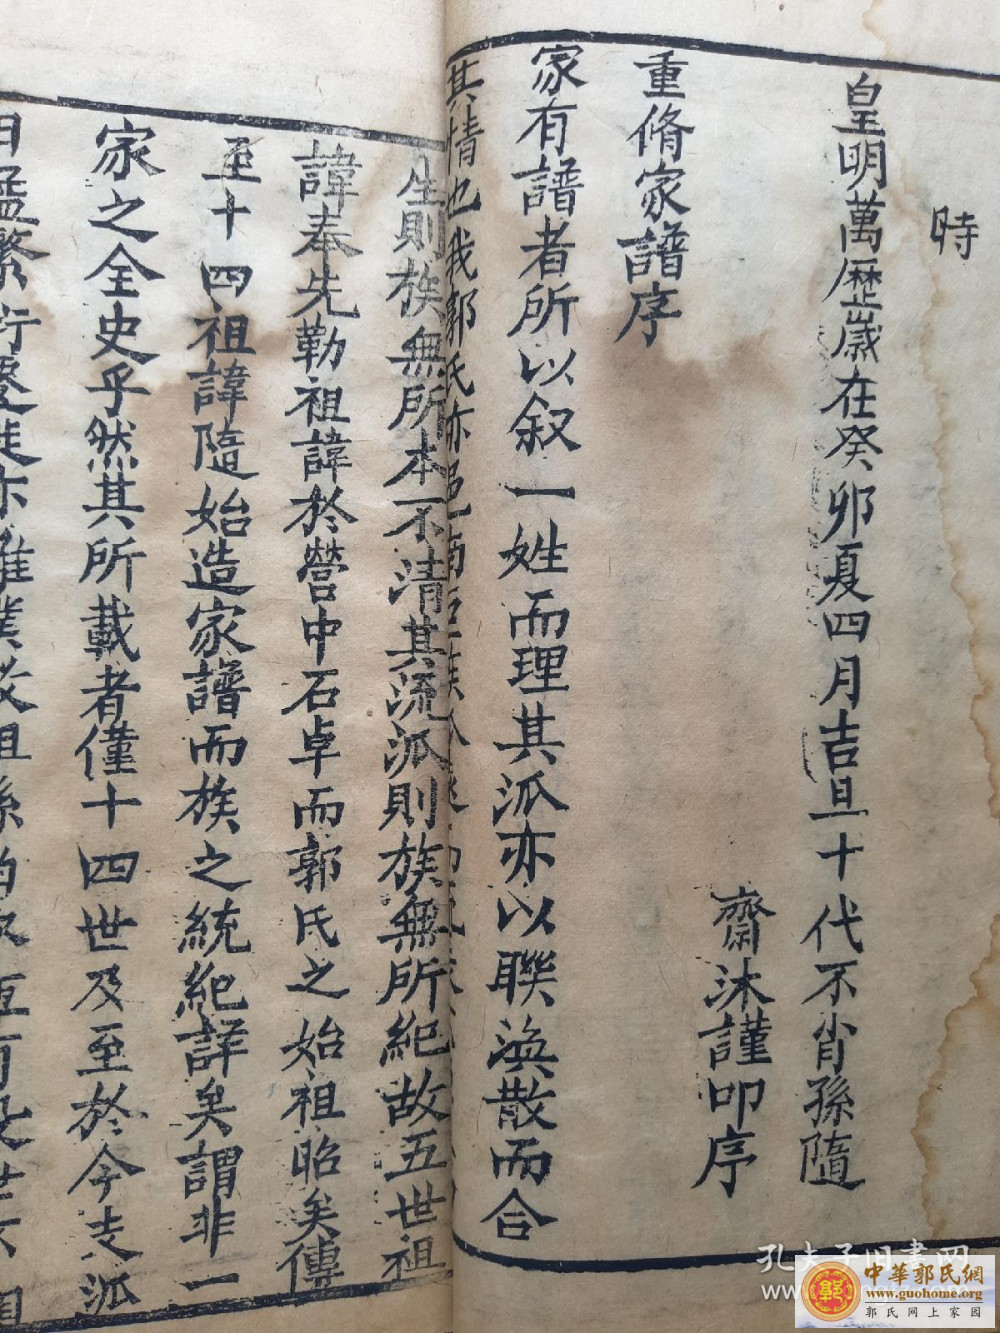 時
皇明萬歷歲在癸卯夏四月吉旦十代不肖孫隨
齋沐謹叩序
重脩家譜序
家有譜者所以叙一姓而理其派亦以聯渙散而合
其情也我郭氏亦邑南巨族
生則族無所本不清其流派則族無所紀故五世祖
諱奉先勒祖諱於營中石卓而郭氏之始祖昭矣傳
至十四祖諱隨始造家譜而族之統紀詳矣謂非一
家之全史乎然其所載者僅十四世及至於今支派
孔夫子旧书网
中華郭氏網
www.guohome.org
郭氏网上家园